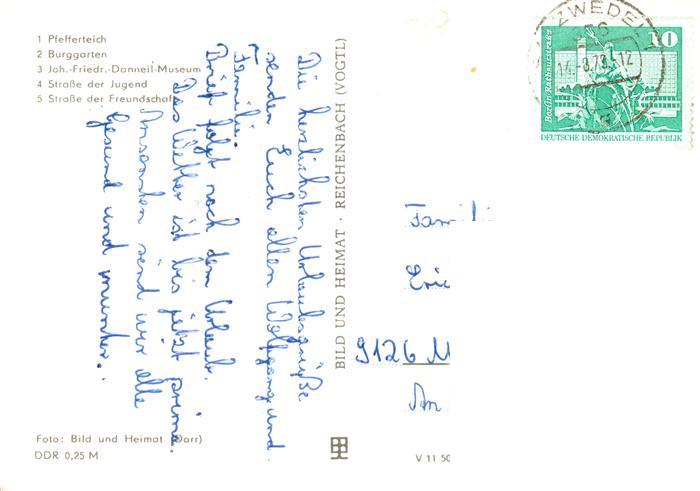 1 Pfefferteich
2 Burggarten
3 Joh.-Friedr.-Danneil-Museum
4 Straße der Jugend
5 Straße der Freundschaft
Die herzlichsten Urlaubsgrüße
senden Euch allen Wolfgang und
Familie.
Brief folgt nach dem Urlaub.
Das Wetter ist bis jetzt prima.
Ansonsten sind wir alle
gesund und munter.
Foto: Bild und Heimat (Darr)
DDR 0,25 M
BILD UND HEIMAT · REICHENBACH (VOGTL)
V 11 50
10
Berlin-Rathausstraße
DEUTSCHE DEMOKRATISCHE REPUBLIK
ZWEDE
Famili
9126 M
An